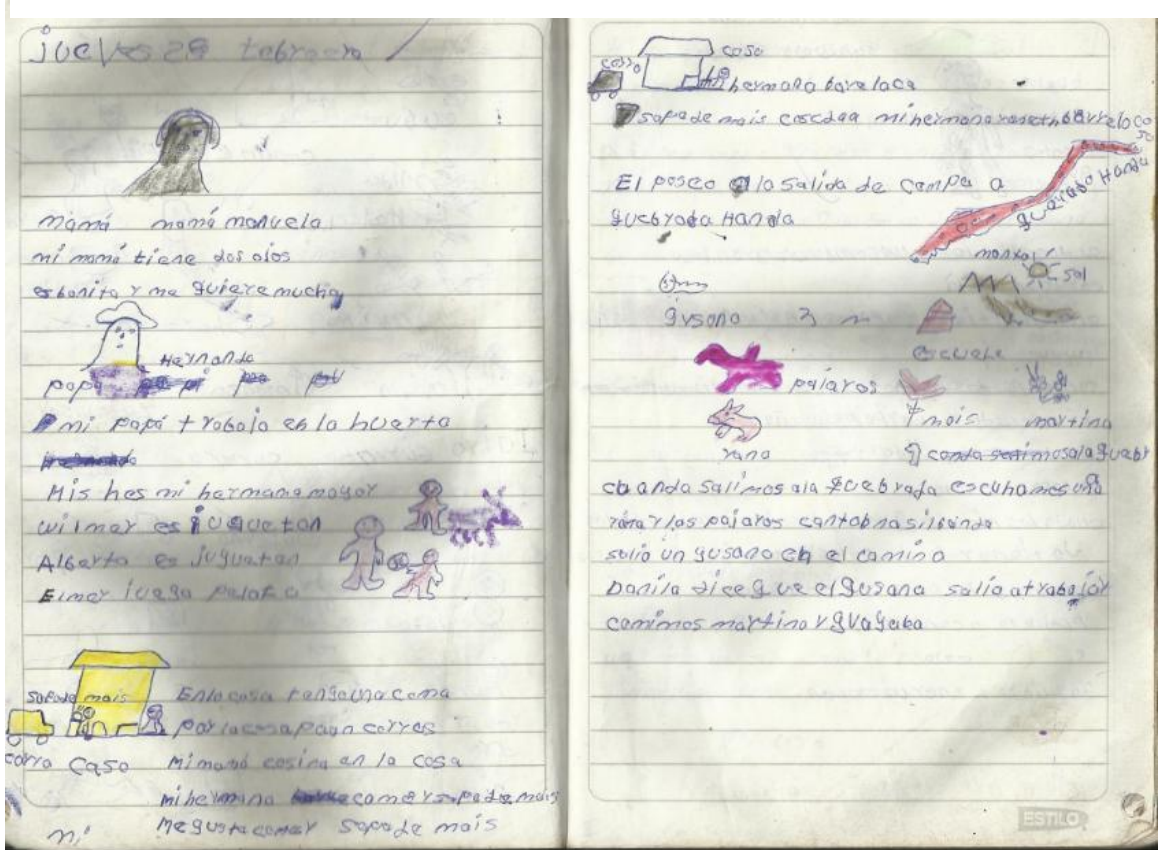 jueves 28 febrero
mamá mamá manuela
mi mamá tiene dos ojos
es bonita y me quiere mucho
Hernando
papá
mi papá trabaja en la huerta
Mis hes mi hermana mayor
wilmar es juguetan
Alberto es juguetan
Elmer juega pelota
sopa de mais
En la casa tengo una cama
por la casa pasan carros
carro casa Mi mamá cosina en la casa
mi hermana comer sopa de mais
mi Me gusta comer sopa de mais
casa
carro
hermana bare la ca
sopa de mais mi hermana barre lo co
so
El paseo a la salida de campa a
quebrada Handa
quebrada Handa
sol
gusano
escuela
pajaros
mais martino
rana
cuando salimos ala quebrada escuhamos una
rana y los pajaros cantabna silbando
salio un gusano en el camino
Danilo dice que el gusana salio atrabajar
comimos martino y guayaba
ESTILO